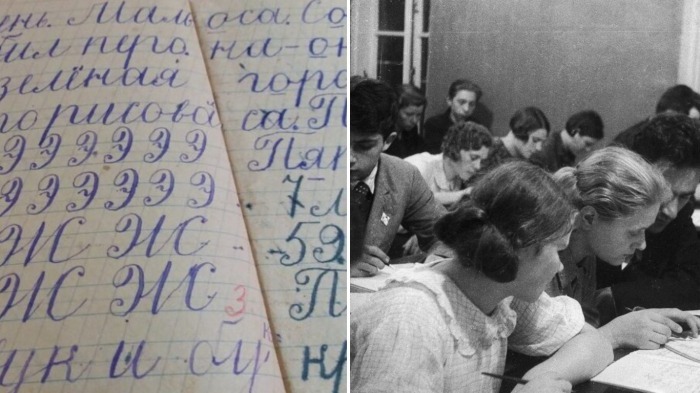 унь. Маль оса. Со
бил пуго. на-он
зелёная горо
по рисова са. П
Э Э Э Э Э Э Пян
Э Э Э Э Э Э 7 л
Ж Ж - 59.
Ж Ж 3 П
ук и